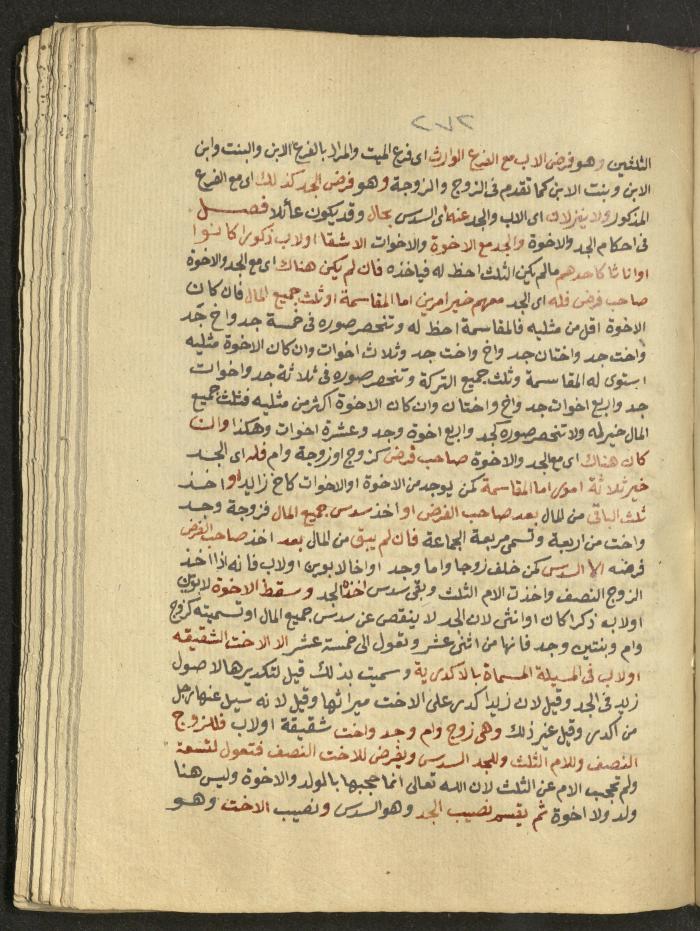 ٢٧٢
الثلثين وهو فرض الاب مع الفرع الوارث اى فرع الميت والمراد بالفرع الابن والبنت وابن
الابن وبنت الابن كما تقدم فى الزوج والزوجة وهو فرض الجد كذلك اى مع الفرع
المذكور ولا ينزلان اى الاب والجد عنه اى السدس بحال وقد يكون عائلا فصل
فى احكام الجد والاخوة والجد مع الاخوة والاخوات الاشقا اولاب ذكورا كانوا
او اناثا كاحدهم مالم يكن الثلث احظ له فياخذه فان لم يكن هناك اى مع الجد والاخوة
صاحب فرض فله اى الجد معهم خير امرين اما المقاسمة او ثلث جميع المال فان كان
الاخوة اقل من مثليه فالمقاسمة احظ له وتنحصر صوره فى خمسة جد واخ جد
واخت جد واختان جد واخ واخت جد وثلاث اخوات وان كان الاخوة مثليه
استوى له المقاسمة وثلث جميع التركة وتنحصر صوره فى ثلاثة جد واخوات
جد واربع اخوات جد واخ واختان وان كان الاخوة اكثر من مثليه فثلث جميع
المال خير له ولا تنحصر صوره كجد واربع اخوة وجد وعشرة اخوات وهكذا وان
كان هناك اى مع الجد والاخوة صاحب فرض كزوج او زوجة وام فله اى الجد
خير ثلاثة امور اما المقاسمة كمن يوجد من الاخوة او الاخوات كاخ زايد او اخذ
ثلث الباقى من المال بعد صاحب الفرض او اخذ سدس جميع المال فزوجة وجد
واخت من اربعة وتسمى مربعة الجماعة فان لم يبق من المال بعد اخذ صاحب الفرض
فرضه الا السدس كمن خلف زوجا واما وجد او اخا لابوين او لاب فانه اذا اخذ
الزوج النصف واخذت الام الثلث وبقى سدس اخذه الجد وسقط الاخوة لابوين
او لاب ذكرا كان او انثى لان الجد لا ينقص عن سدس جميع المال او تسميته كزوج
وام وبنتين وجد فانها من اثنى عشر وتعول الى خمسة عشر الا الاخت الشقيقه
او لاب فى المسيلة المسماة بالاكدرية وسميت بذلك قيل لتكديرها لاصول
زيد فى الجد وقيل لان زيدا كدر على الاخت ميراثها وقيل لانه سيل عنها رجل
من اكدر وقيل غير ذلك وهى زوج وام وجد واخت شقيقة او لاب فللزوج
النصف وللام الثلث وللجد السدس ويفرض للاخت النصف فتعول لتسعة
ولم تحجب الام عن الثلث لان الله تعالى انما حجبها بالولد والاخوة وليس هنا
ولد ولا اخوة ثم يقسم نصيب الجد وهو السدس ونصيب الاخت وهو